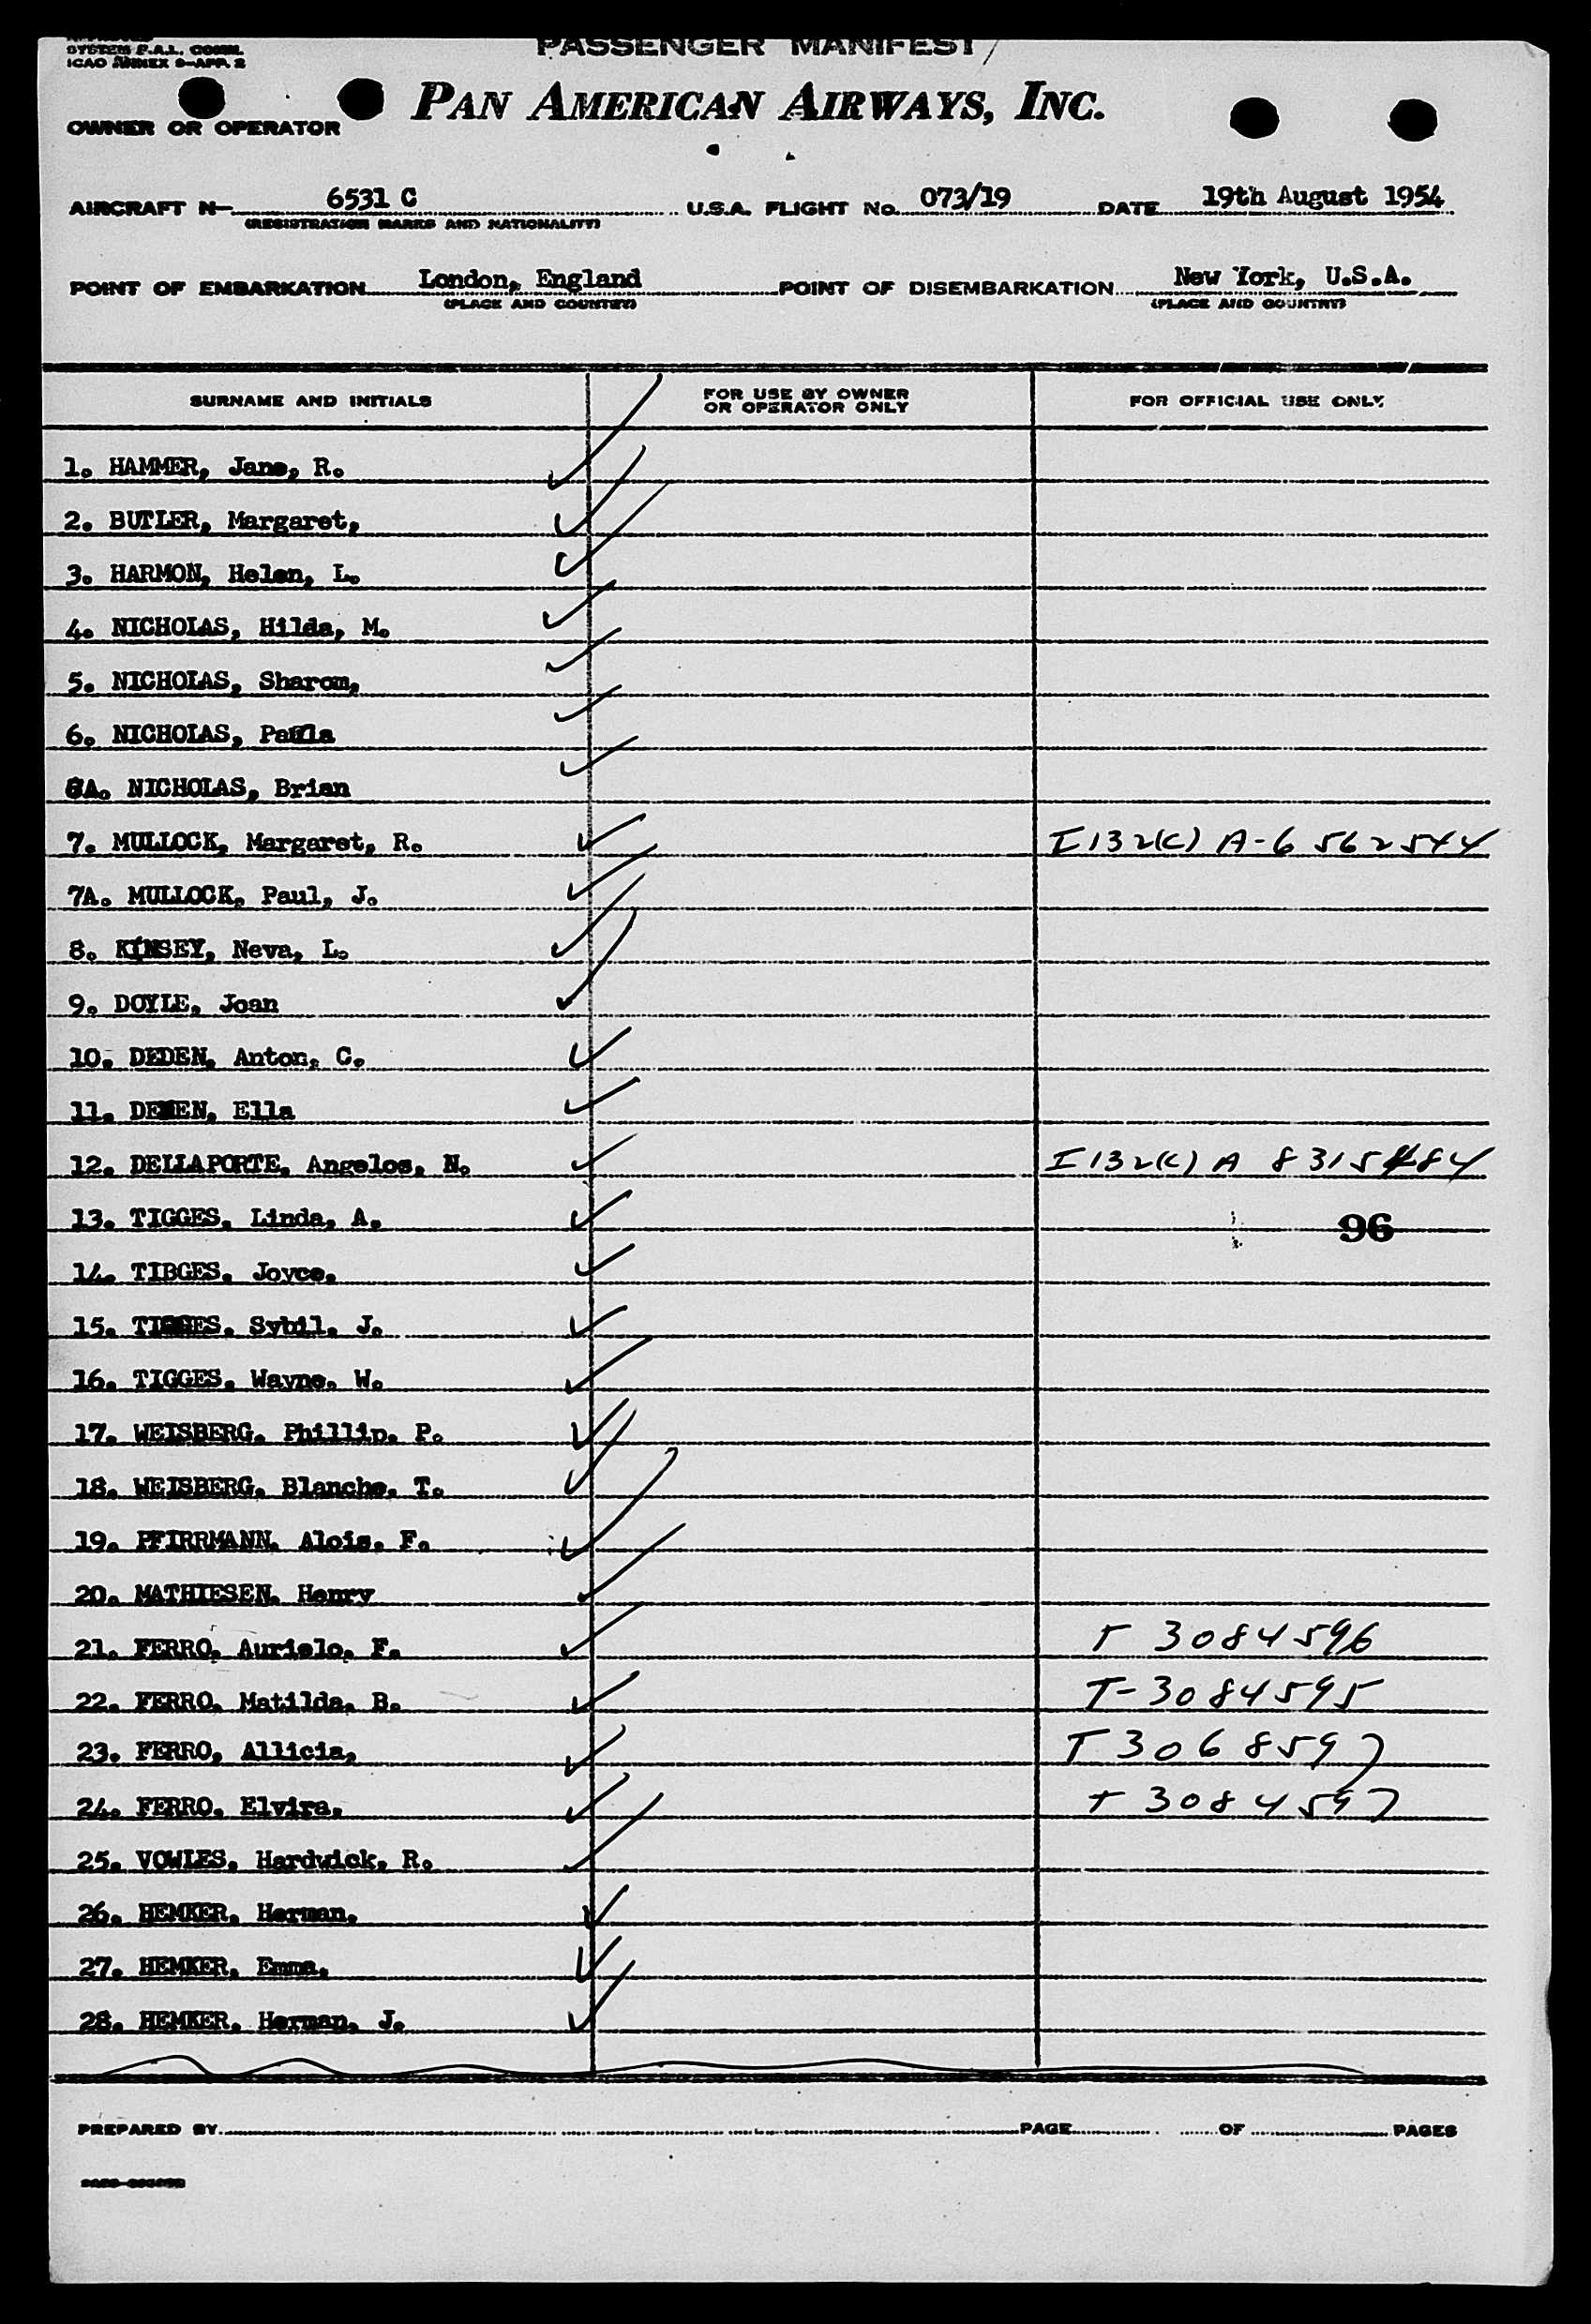 SYSTEM F.A.L. COMM.
ICAO ANNEX 9-APP. 2
PASSENGER MANIFEST
PAN AMERICAN AIRWAYS, INC.
OWNER OR OPERATOR
AIRCRAFT N- 6531 C U.S.A. FLIGHT No. 073/19 DATE 19th August 1954
(REGISTRATION MARKS AND NATIONALITY)
POINT OF EMBARKATION London, England POINT OF DISEMBARKATION New York, U.S.A.
(PLACE AND COUNTRY) (PLACE AND COUNTRY)
SURNAME AND INITIALS FOR USE BY OWNER OR OPERATOR ONLY FOR OFFICIAL USE ONLY
1. HAMMER, Jane, R.
2. BUTLER, Margaret,
3. HARMON, Helen, L.
4. NICHOLAS, Hilda, M.
5. NICHOLAS, Sharon,
6. NICHOLAS, Paula
6A. NICHOLAS, Brian
7. MULLOCK, Margaret, R. I 132(C) A-6 562544
7A. MULLOCK, Paul, J.
8. KINSEY, Neva, L.
9. DOYLE, Joan
10. DEDEN, Anton, C.
11. DEDEN, Ella
12. DELLAPORTE, Angelos, N. I 132(C) A 8315484
13. TIGGES, Linda, A. 96
14. TIBGES, Joyce,
15. TIGGES, Sybil, J.
16. TIGGES, Wayne, W.
17. WEISBERG, Phillip, P.
18. WEISBERG, Blanche, T.
19. PFIRRMANN, Alois, F.
20. MATHIESEN, Henry
21. FERRO, Aurielo, F. T 3084596
22. FERRO, Matilda, B. T-3084595
23. FERRO, Allicia, T 3068597
24. FERRO, Elvira, T 3084597
25. VOWLES, Hardwick, R.
26. HEMKER, Herman,
27. HEMKER, Emma,
28. HEMKER, Herman, J.
PREPARED BY PAGE OF PAGES